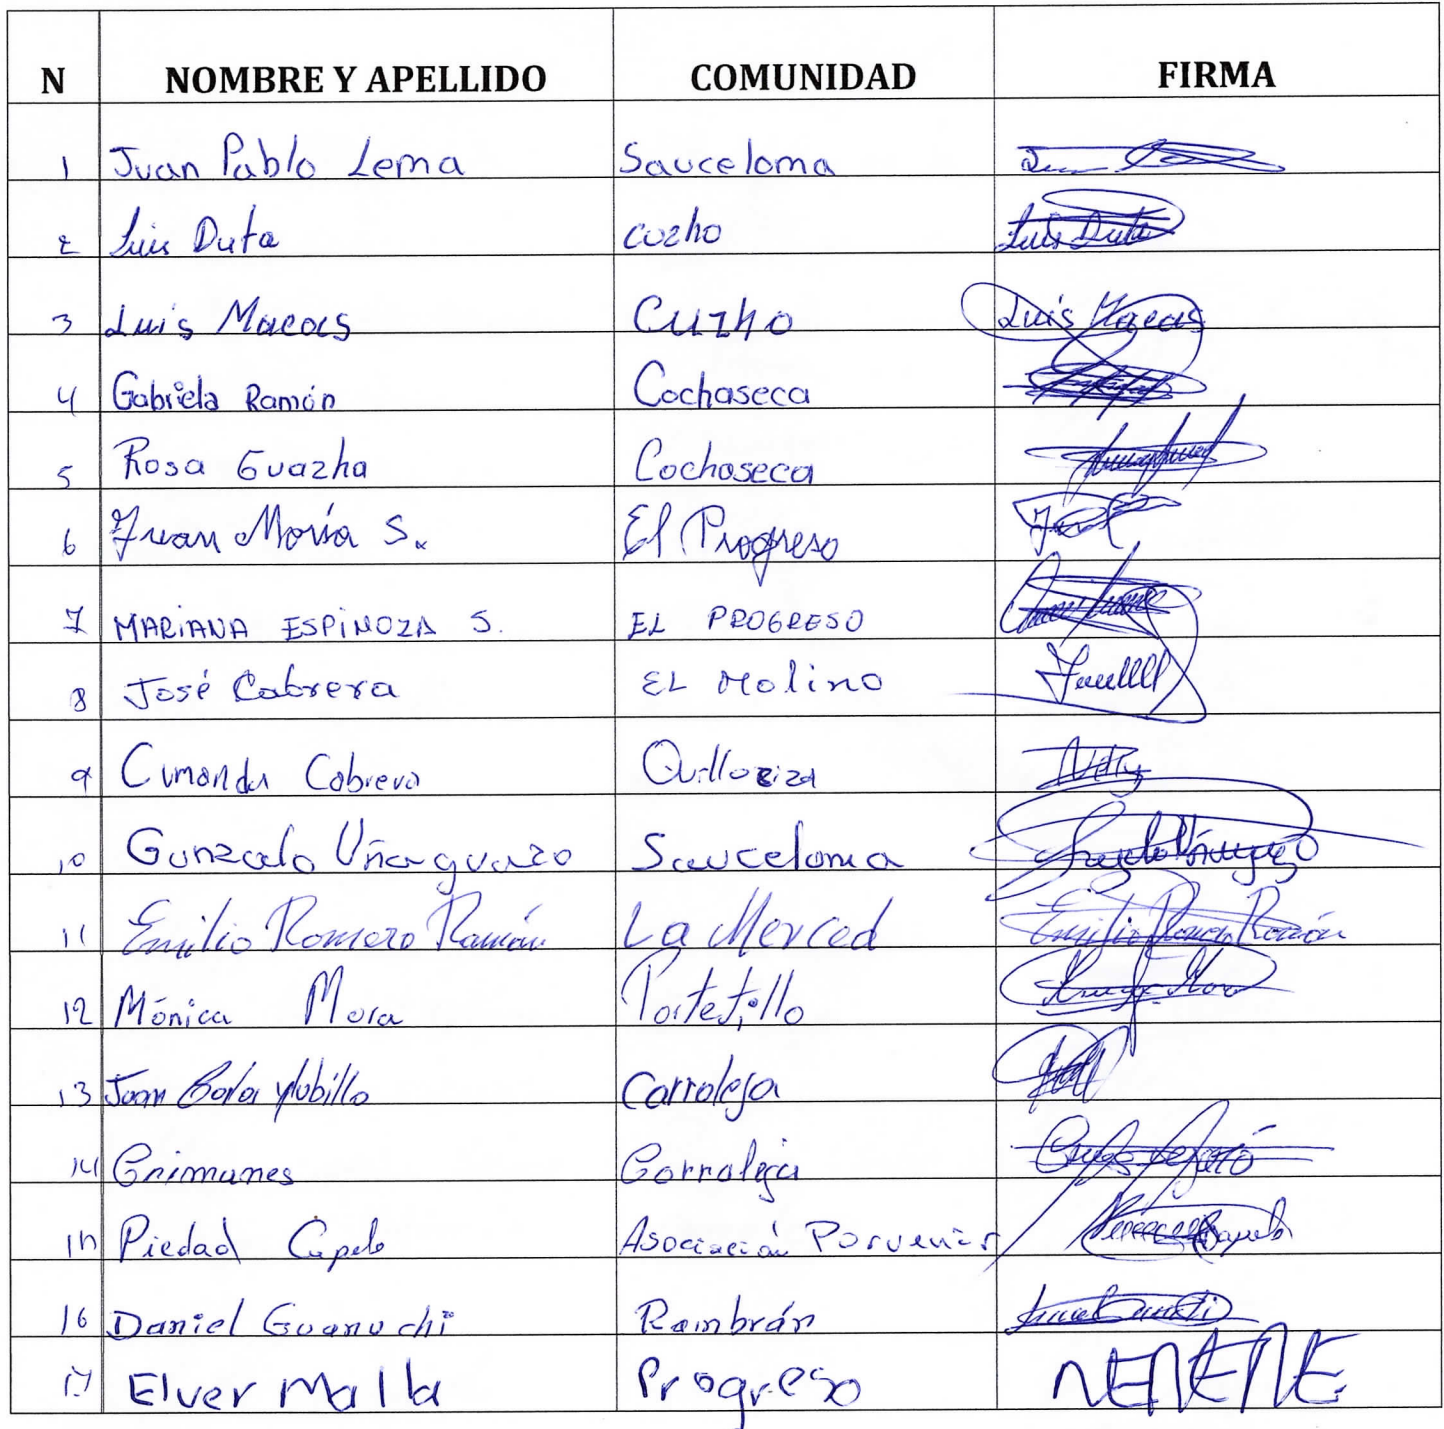 N NOMBRE Y APELLIDO COMUNIDAD FIRMA
1 Juan Pablo Lema Sauceloma
2 Luis Duta cuzho Luis Duta
3 Luis Macas Cuzho Luis Macas
4 Gabriela Ramón Cochaseca
5 Rosa Guazha Cochaseca
6 Juan María S. El Progreso
7 MARIANA ESPINOZA S. EL PROGRESO
8 José Cabrera EL Molino
9 Cumanda Cabrera
10 Gonzalo Uñaguazo Sauceloma
11 Emilio Romero Ramón La Merced Emilio Romero Ramón
12 Mónica Mora Portetillo
13 Juan Corraleja
14 Corraleja
15 Piedad Capelo Asociación Porvenir
16 Daniel Guanuchi Rambrán
17 Elver Malla Progreso